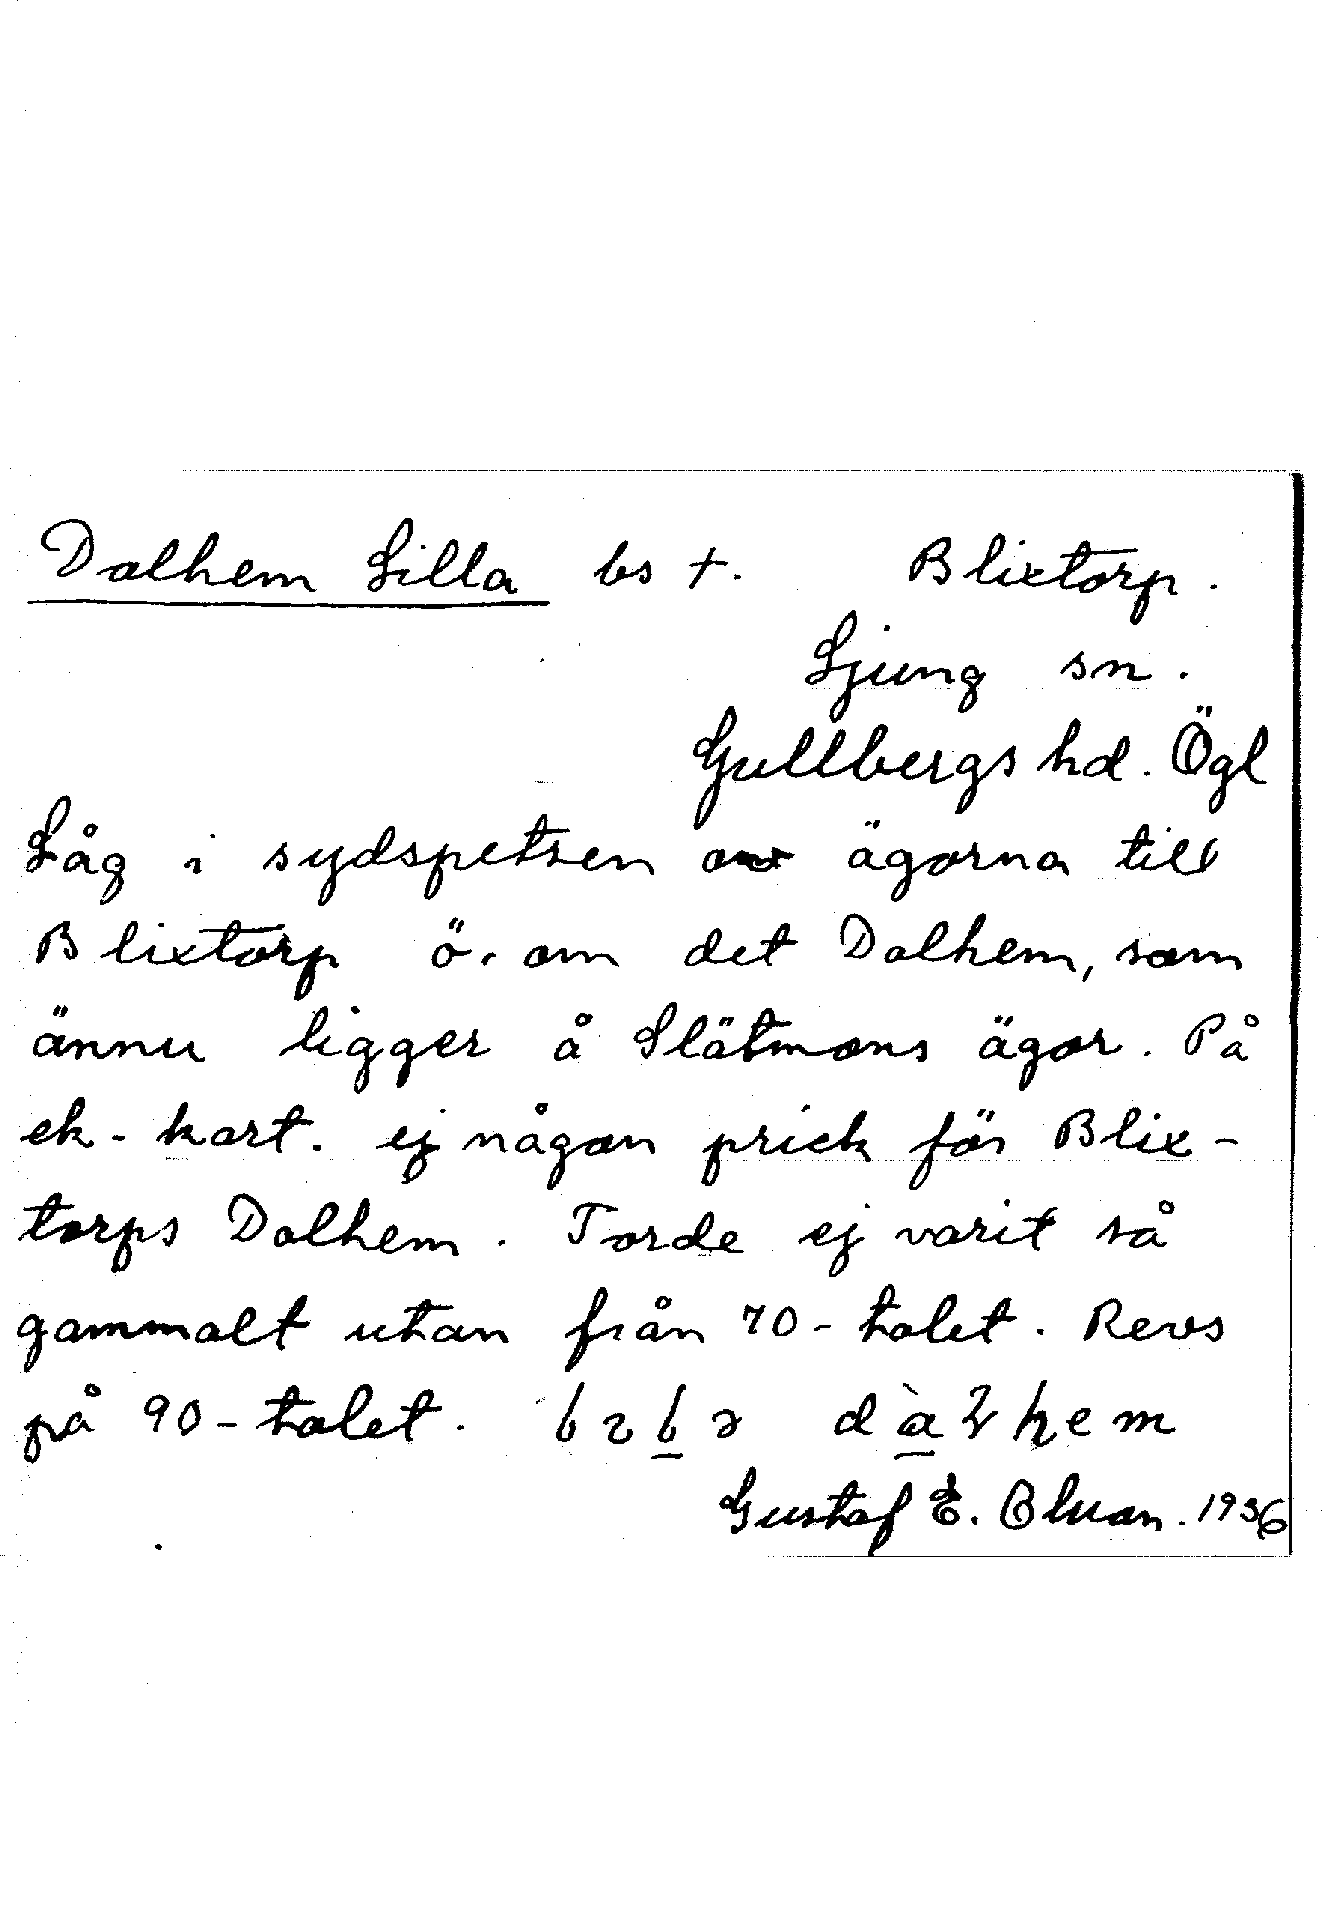 Dalhem Lilla bs +. Blixtorp.
Ljung sn.
Gullbergs hd. Ögl
Låg i sydspetsen av ägorna till
Blixtorp ö. om det Dalhem, som
ännu ligger å Slätmons ägor. På
ek-kart. ej någon prick för Blix-
torps Dalhem. Torde ej varit så
gammalt utan från 70-talet. Revs
på 90-talet. dàlhem
Gustaf E. 1936